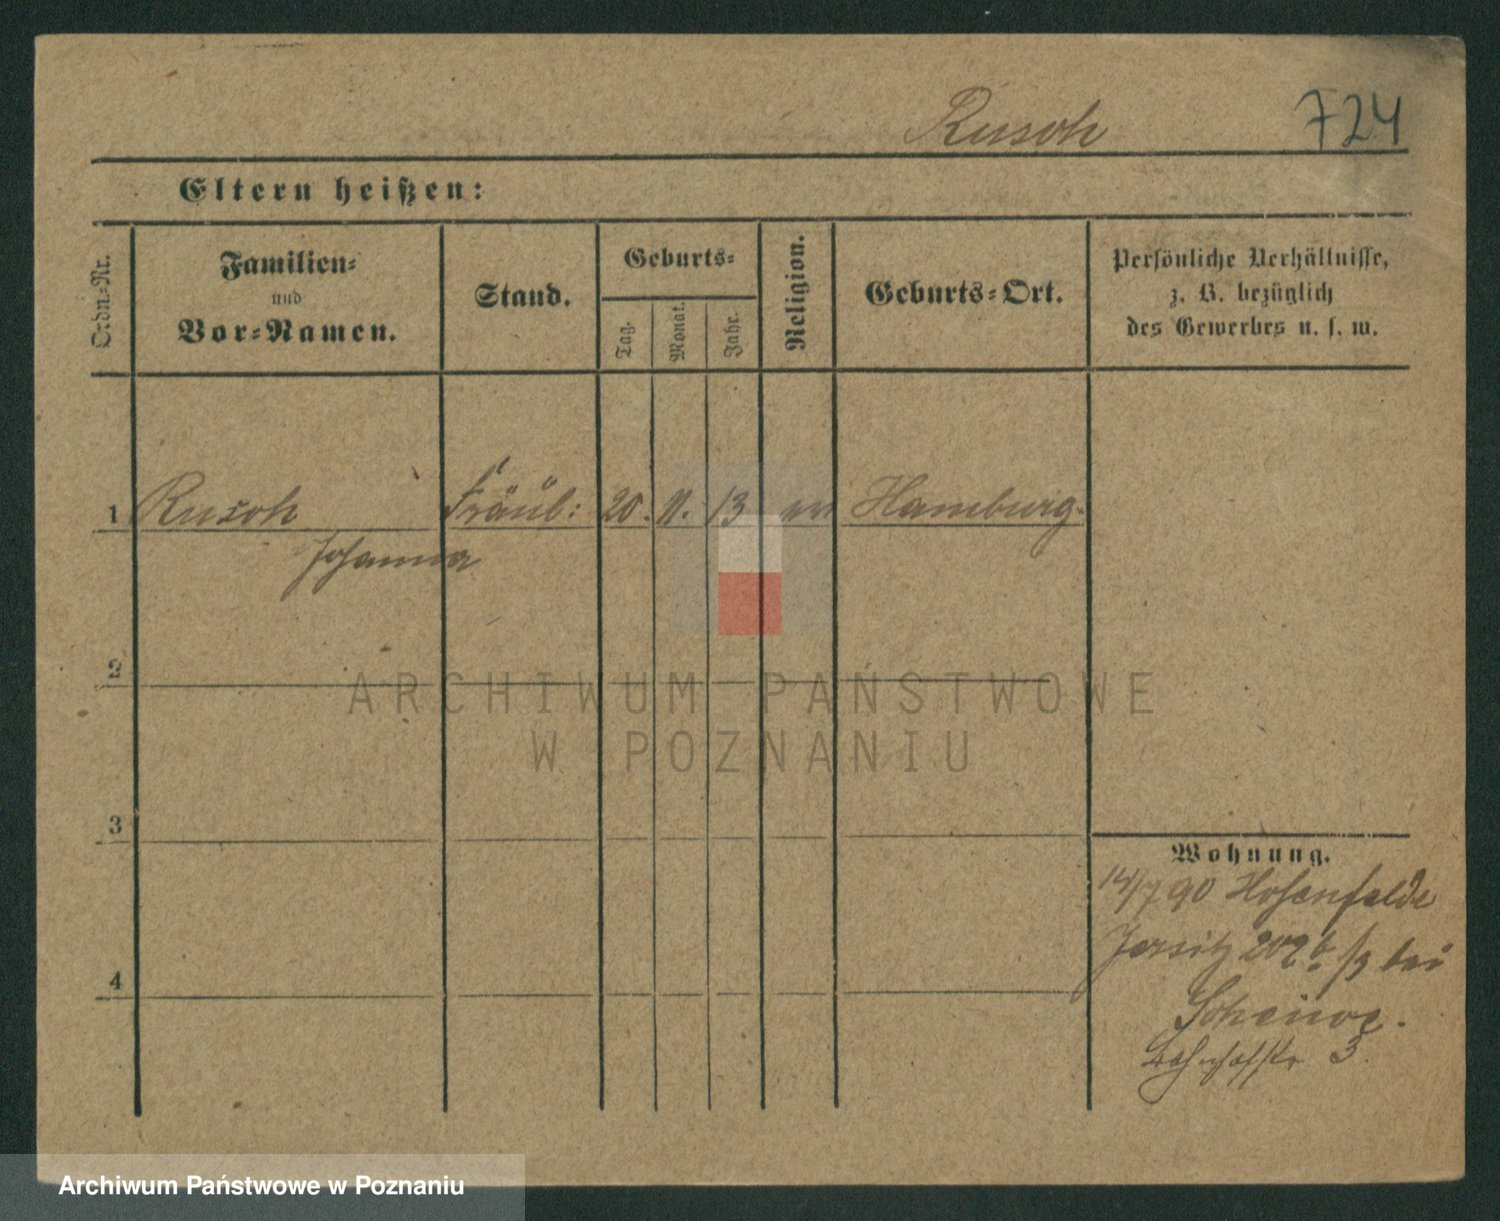 Rusch
724
Eltern heißen:
Ordn.-Nr.
Familien-
und
Vor-Namen.
Stand.
Geburts-
Tag.
Monat.
Jahr.
Religion.
Geburts-Ort.
Persönliche Verhältnisse,
z. B. bezüglich
des Gewerbes u. s. w.
1 Rusch Fräul: 20. 11. 13 ev Hamburg.
Johanna
2
ARCHIWUM PAŃSTWOWE
W POZNANIU
3
Wohnung.
14/7 90 Hohenfelde
Jersitz 202b /3 bei
4
Bahnhofstr 3.
Archiwum Państwowe w Poznaniu